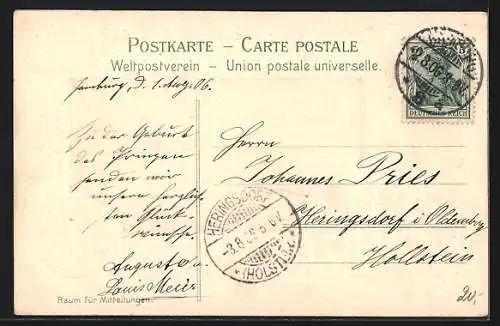 POSTKARTE – CARTE POSTALE
Weltpostverein – Union postale universelle.
Hamburg, d. 1. Aug. 06.
Zu der Geburt
des Prinzen
senden wir
unsern herzlich-
sten Glück-
wünsche.
Auguste u.
Louis Meier
Raum für Mitteilungen.
DEUTSCHES REICH
Herrn
Johannes Pries
Heringsdorf i/Oldenburg
Hollstein
HERINGSDORF
-3.8.
(HOLSTEIN)
20,-